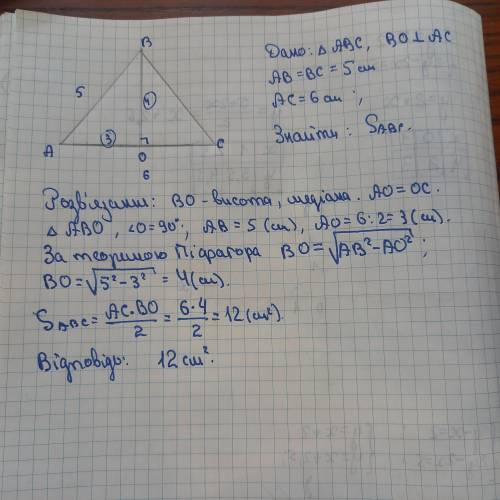 B
Дано: △ ABC, BO ⊥ AC
AB = BC = 5 см
5
④
AC = 6 см ;
Знайти : S_ABC.
③
A
O
C
6
Розв'язання: BO - висота, медіана. AO = OC.
△ ABO, ∠O = 90°; AB = 5 (см), AO = 6 : 2 = 3 (см).
За теоримою Піфагора BO = √(AB² − AO²) ;
BO = √(5² − 3²) = 4 (см).
S_ABC = AC · BO / 2 = 6 · 4 / 2 = 12 (см²)
Відповідь: 12 см².